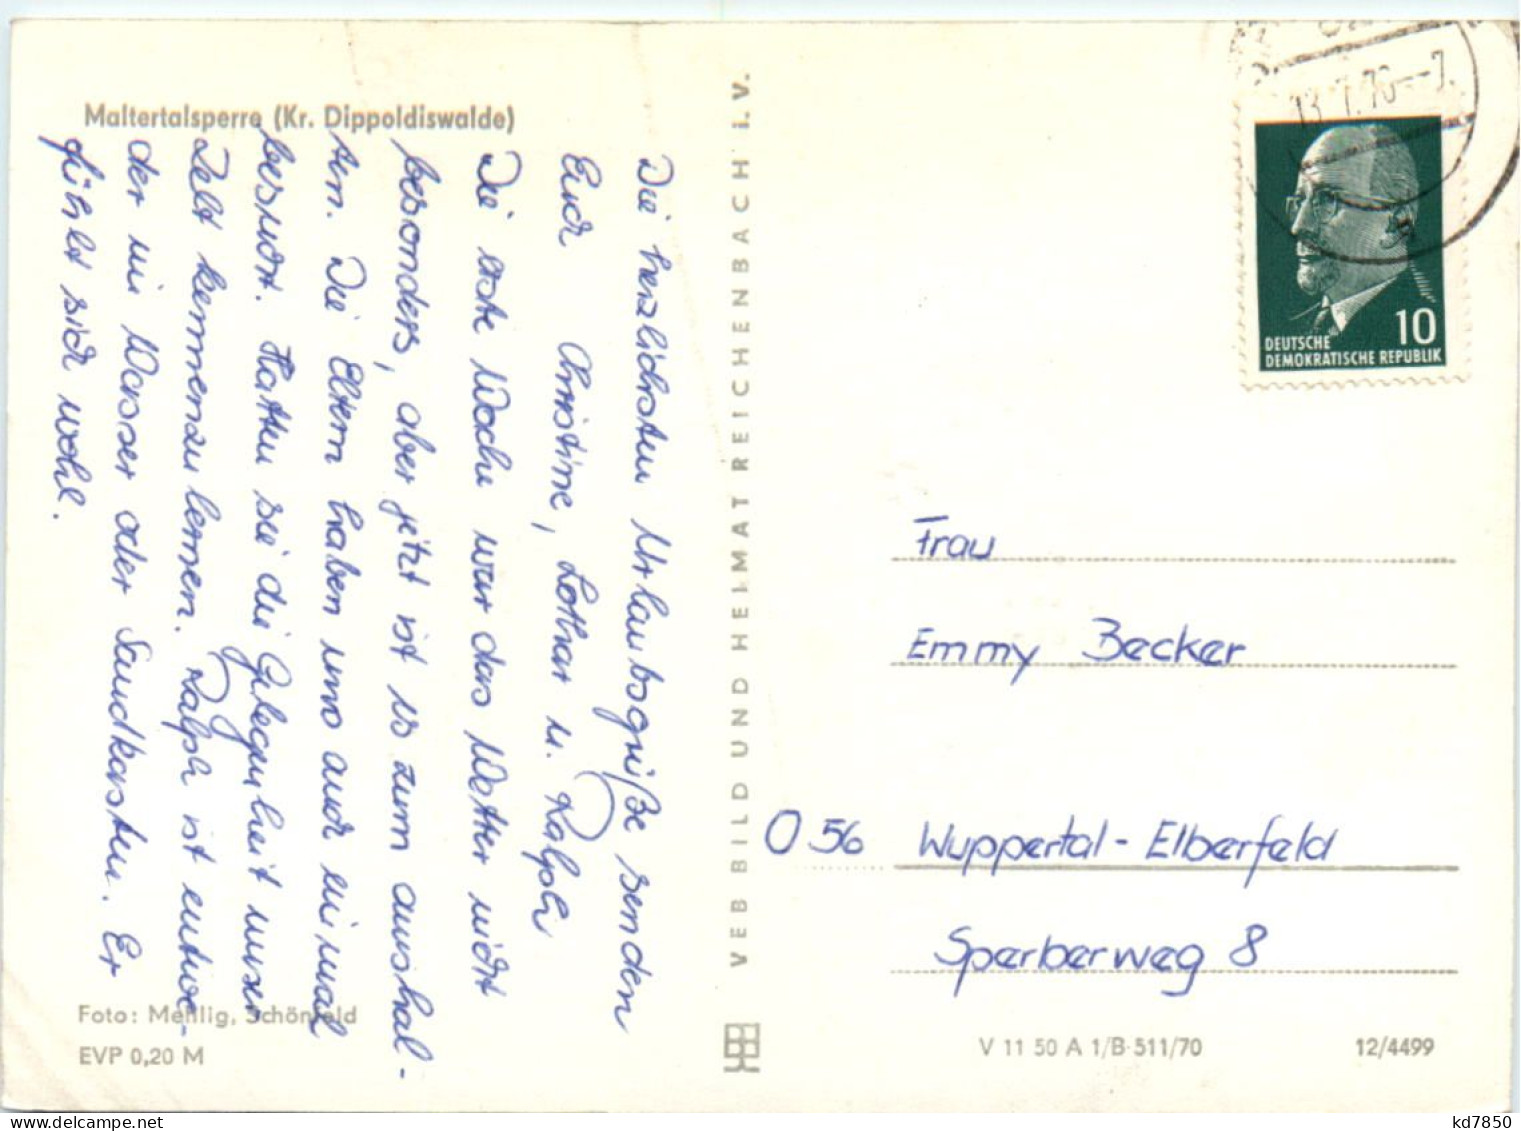 Maltertalsperre (Kr. Dippoldiswalde)
Die herzlichsten Urlaubsgrüße senden
Euch Christine, Lothar u. Ralph
Die erste Woche war das Wetter nicht
besonders, aber jetzt ist es zum aushal-
ten. Die Eltern haben uns auch einmal
besucht. Hatten sie die Gelegenheit unser
Zelt kennenzulernen. Ralph ist entwe-
der im Wasser oder Sandkasten. Er
fühlt sich wohl.
Foto: Mehlig, Schönfeld
EVP 0,20 M
VEB BILD UND HEIMAT REICHENBACH i. V.
13.7.70--7
10
DEUTSCHE
DEMOKRATISCHE REPUBLIK
Frau
Emmy Becker
O 56 Wuppertal-Elberfeld
Sperberweg 8
V 11 50 A 1/B-511/70
12/4499
kd7850